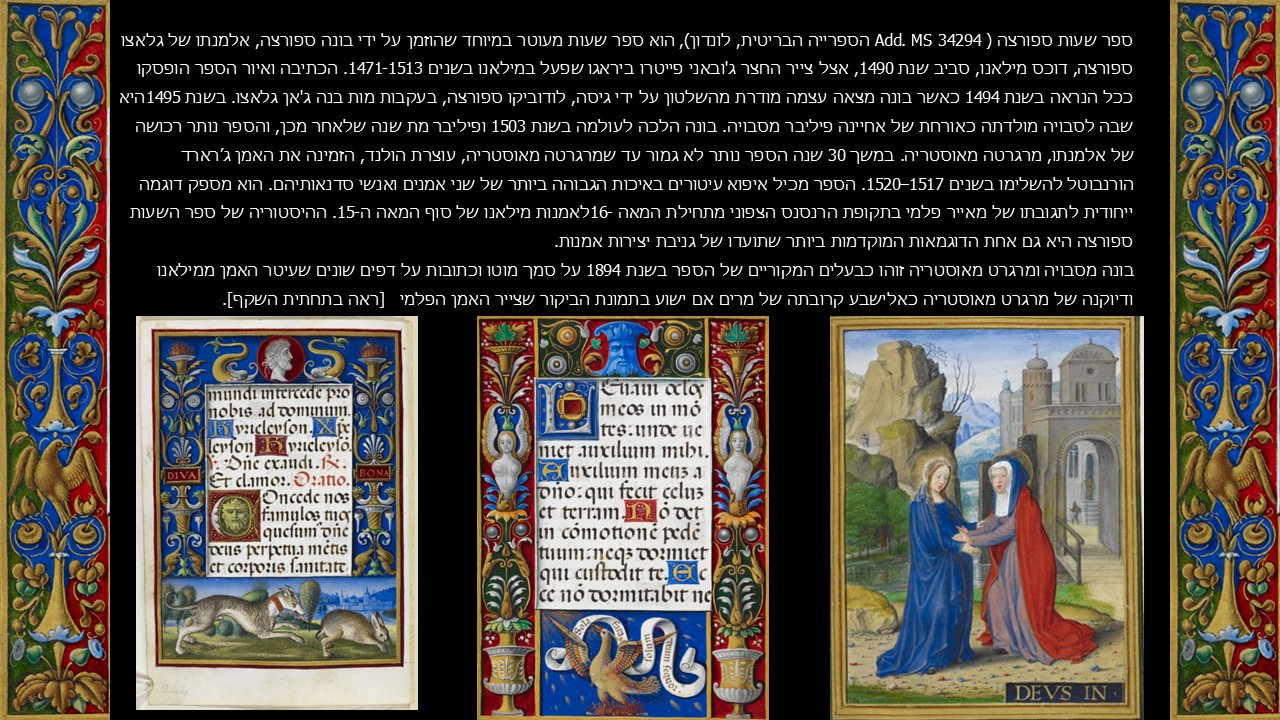 ספר שעות ספורצה ( Add. MS 34294 הספרייה הבריטית, לונדון), הוא ספר שעות מעוטר במיוחד שהוזמן על ידי בונה ספורצה, אלמנתו של גלאצו
ספורצה, דוכס מילאנו, סביב שנת 1490, אצל צייר החצר ג'ובאני פייטרו ביראגו שפעל במילאנו בשנים 1471-1513. הכתיבה ואיור הספר הופסקו
ככל הנראה בשנת 1494 כאשר בונה מצאה עצמה מודרת מהשלטון על ידי גיסה, לודוביקו ספורצה, בעקבות מות בנה ג'אן גלאצו. בשנת 1495היא
שבה לסבויה מולדתה כאורחת של אחיינה פיליבר מסבויה. בונה הלכה לעולמה בשנת 1503 ופיליבר מת שנה שלאחר מכן, והספר נותר רכושה
של אלמנתו, מרגרטה מאוסטריה. במשך 30 שנה הספר נותר לא גמור עד שמרגרטה מאוסטריה, עוצרת הולנד, הזמינה את האמן ג'רארד
הורנבוטל להשלימו בשנים 1517–1520. הספר מכיל איפוא עיטורים באיכות הגבוהה ביותר של שני אמנים ואנשי סדנאותיהם. הוא מספק דוגמה
ייחודית לתגובתו של מאייר פלמי בתקופת הרנסנס הצפוני מתחילת המאה -16לאמנות מילאנו של סוף המאה ה-15. ההיסטוריה של ספר השעות
ספורצה היא גם אחת הדוגמאות המוקדמות ביותר שתועדו של גניבת יצירות אמנות.
בונה מסבויה ומרגרט מאוסטריה זוהו כבעלים המקוריים של הספר בשנת 1894 על סמך מוטו וכתובות על דפים שונים שעיטר האמן ממילאנו
ודיוקנה של מרגרט מאוסטריה כאלישבע קרובתה של מרים אם ישוע בתמונת הביקור שצייר האמן הפלמי [ראה בתחתית השקף].
mundi intercede pro
nobis ad dominum.
Kyrieleyson. Xpe
leyson Kyrieleysō
Dn̄e exaudi. R.
Et clamor. Oratio.
Oncede nos
famulos tuos
quesum dn̄e
deus perpetua mētis
et corporis sanitate
DIVA
BONA
Leuaui oclos
meos in mō
tes: unde ue
niet auxilium mihi.
Auxilium meum a
dn̄o: qui fecit celum
et terram. Nō det
in cōmotionē pedē
tuum: neqz dormiet
qui custodit te. Ec
ce nō dormitabit ne
Sola
DEVS IN